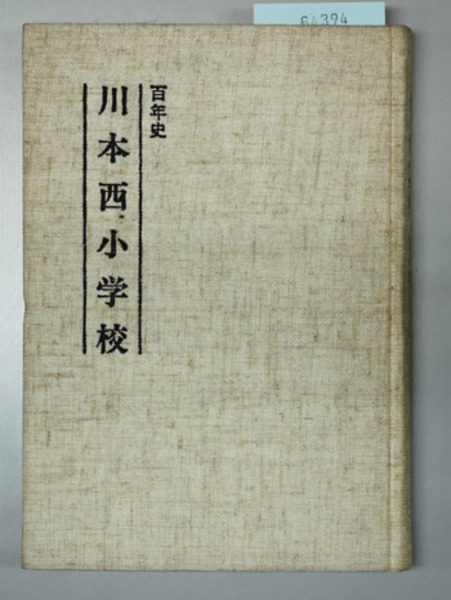 64394
百年史
川本西小学校